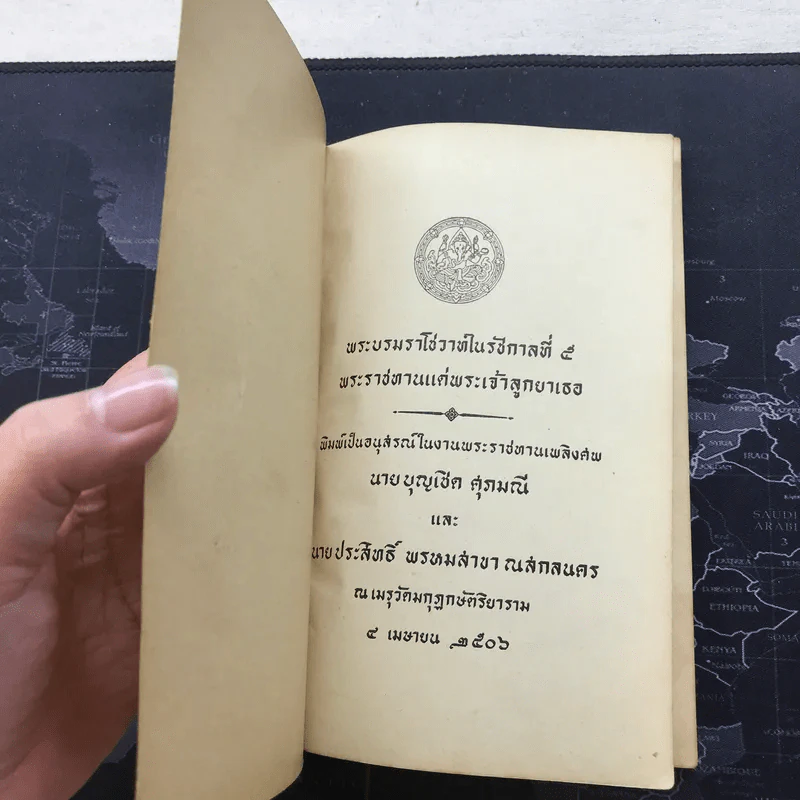 พระบรมราโชวาทในรัชกาลที่ ๕
พระราชทานแด่พระเจ้าลูกยาเธอ
พิมพ์เป็นอนุสรณ์ในงานพระราชทานเพลิงศพ
นาย บุญเชิด ศุภมณี
และ
นาย ประสิทธิ์ พรหมสาขา ณสกลนคร
ณ เมรุวัดมกุฏกษัตริยาราม
๔ เมษายน ๒๕๐๖
Labrador
MOSCOW
TURKEY
GEORGIA
ARMENIA
SYRIA
IRAQ
SAUDI
ARABIA
3
DJIBOUTI
ETHIOPIA
KENYA
MOZAMBIQUE